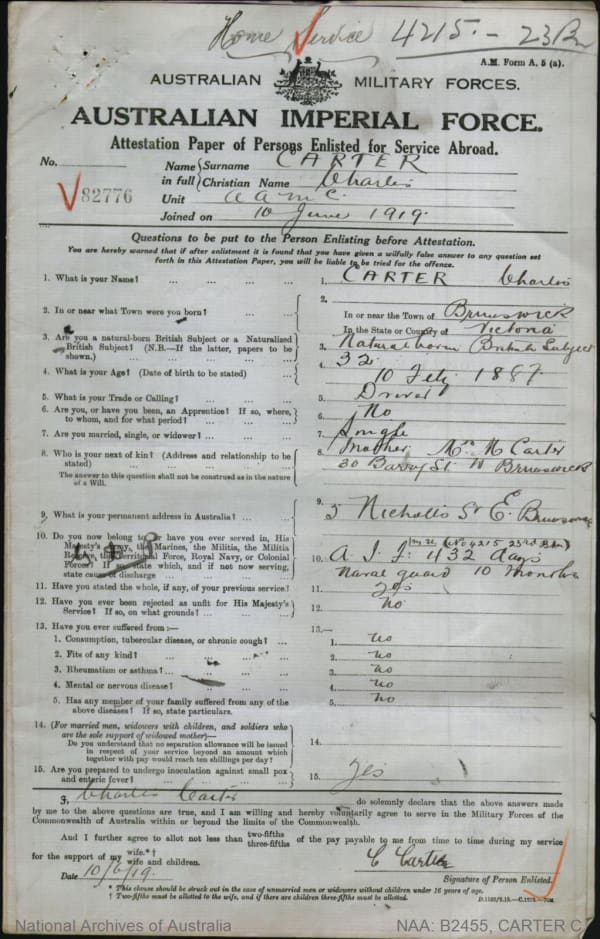 Home Service 4215 - 23Bn
A.M. Form A. 5 (a).
AUSTRALIAN MILITARY FORCES.
AUSTRALIAN IMPERIAL FORCE.
Attestation Paper of Persons Enlisted for Service Abroad.
No. 82776
Name in full { Surname CARTER
Christian Name Charles
Unit A A M C.
Joined on 10 June 1919.
Questions to be put to the Person Enlisting before Attestation.
You are hereby warned that if after enlistment it is found that you have given a wilfully false answer to any question set
forth in this Attestation Paper, you will be liable to be tried for the offence.
1. What is your Name? ... ... ... ... 1. CARTER Charles
2. In or near what Town were you born? ... ... 2. In or near the Town of Brunswick
In the State or County of Victoria
3. Are you a natural-born British Subject or a Naturalized
British Subject? (N.B.—If the latter, papers to be
shown.) ... ... ... 3. Natural born British Subject
4. What is your Age? (Date of birth to be stated) ... 4. 32
10 Feby 1887
5. What is your Trade or Calling? ... ... ... 5. Driver
6. Are you, or have you been, an Apprentice? If so, where,
to whom, and for what period? ... ... ... 6. No
7. Are you married, single, or widower? ... ... 7. Single
8. Who is your next of kin? (Address and relationship to be
stated) 8. Mother Mrs M Carter
30 St W Brunswick
The answer to this question shall not be construed as in the nature
of a Will.
9. What is your permanent address in Australia? ... ... 9. 5 Nicholls St E. Brunswick
10. Do you now belong to or have you ever served in, His
Majesty's Army, the Marines, the Militia, the Militia
Reserve, the Territorial Force, Royal Navy, or Colonial
Forces? If so, state which, and if not now serving,
state cause of discharge ... ... ... 10. (No 4215 23rd Btn)
A I F. 432 days
Naval guard 10 months
11. Have you stated the whole, if any, of your previous service? 11. yes
12. Have you ever been rejected as unfit for His Majesty's
Service? If so, on what grounds? ... ... 12. no
13. Have you ever suffered from:— 13.—
1. Consumption, tubercular disease, or chronic cough? ... 1. no
2. Fits of any kind? ... ... ... 2. no
3. Rheumatism or asthma? ... ... 3. no
4. Mental or nervous disease? ... ... ... 4. no
5. Has any member of your family suffered from any of the
above diseases? If so, state particulars. 5. no
14. (For married men, widowers with children, and soldiers who
are the sole support of widowed mother)—
Do you understand that no separation allowance will be issued
in respect of your service beyond an amount which
together with pay would reach ten shillings per day? 14.
15. Are you prepared to undergo inoculation against small pox
and enteric fever? ... ... ... ... 15. yes
I, Charles Carter do solemnly declare that the above answers made
by me to the above questions are true, and I am willing and hereby voluntarily agree to serve in the Military Forces of the
Commonwealth of Australia within or beyond the limits of the Commonwealth.
And I further agree to allot not less than two-fifths three-fifths of the pay payable to me from time to time during my service
for the support of my wife.*† wife and children.
Date 10/6/19. C Carter
Signature of Person Enlisted.
* This clause should be struck out in the case of unmarried men or widowers without children under 16 years of age.
† Two-fifths must be allotted to the wife, and if there are children three-fifths must be allotted.
National Archives of Australia
NAA: B2455, CARTER C